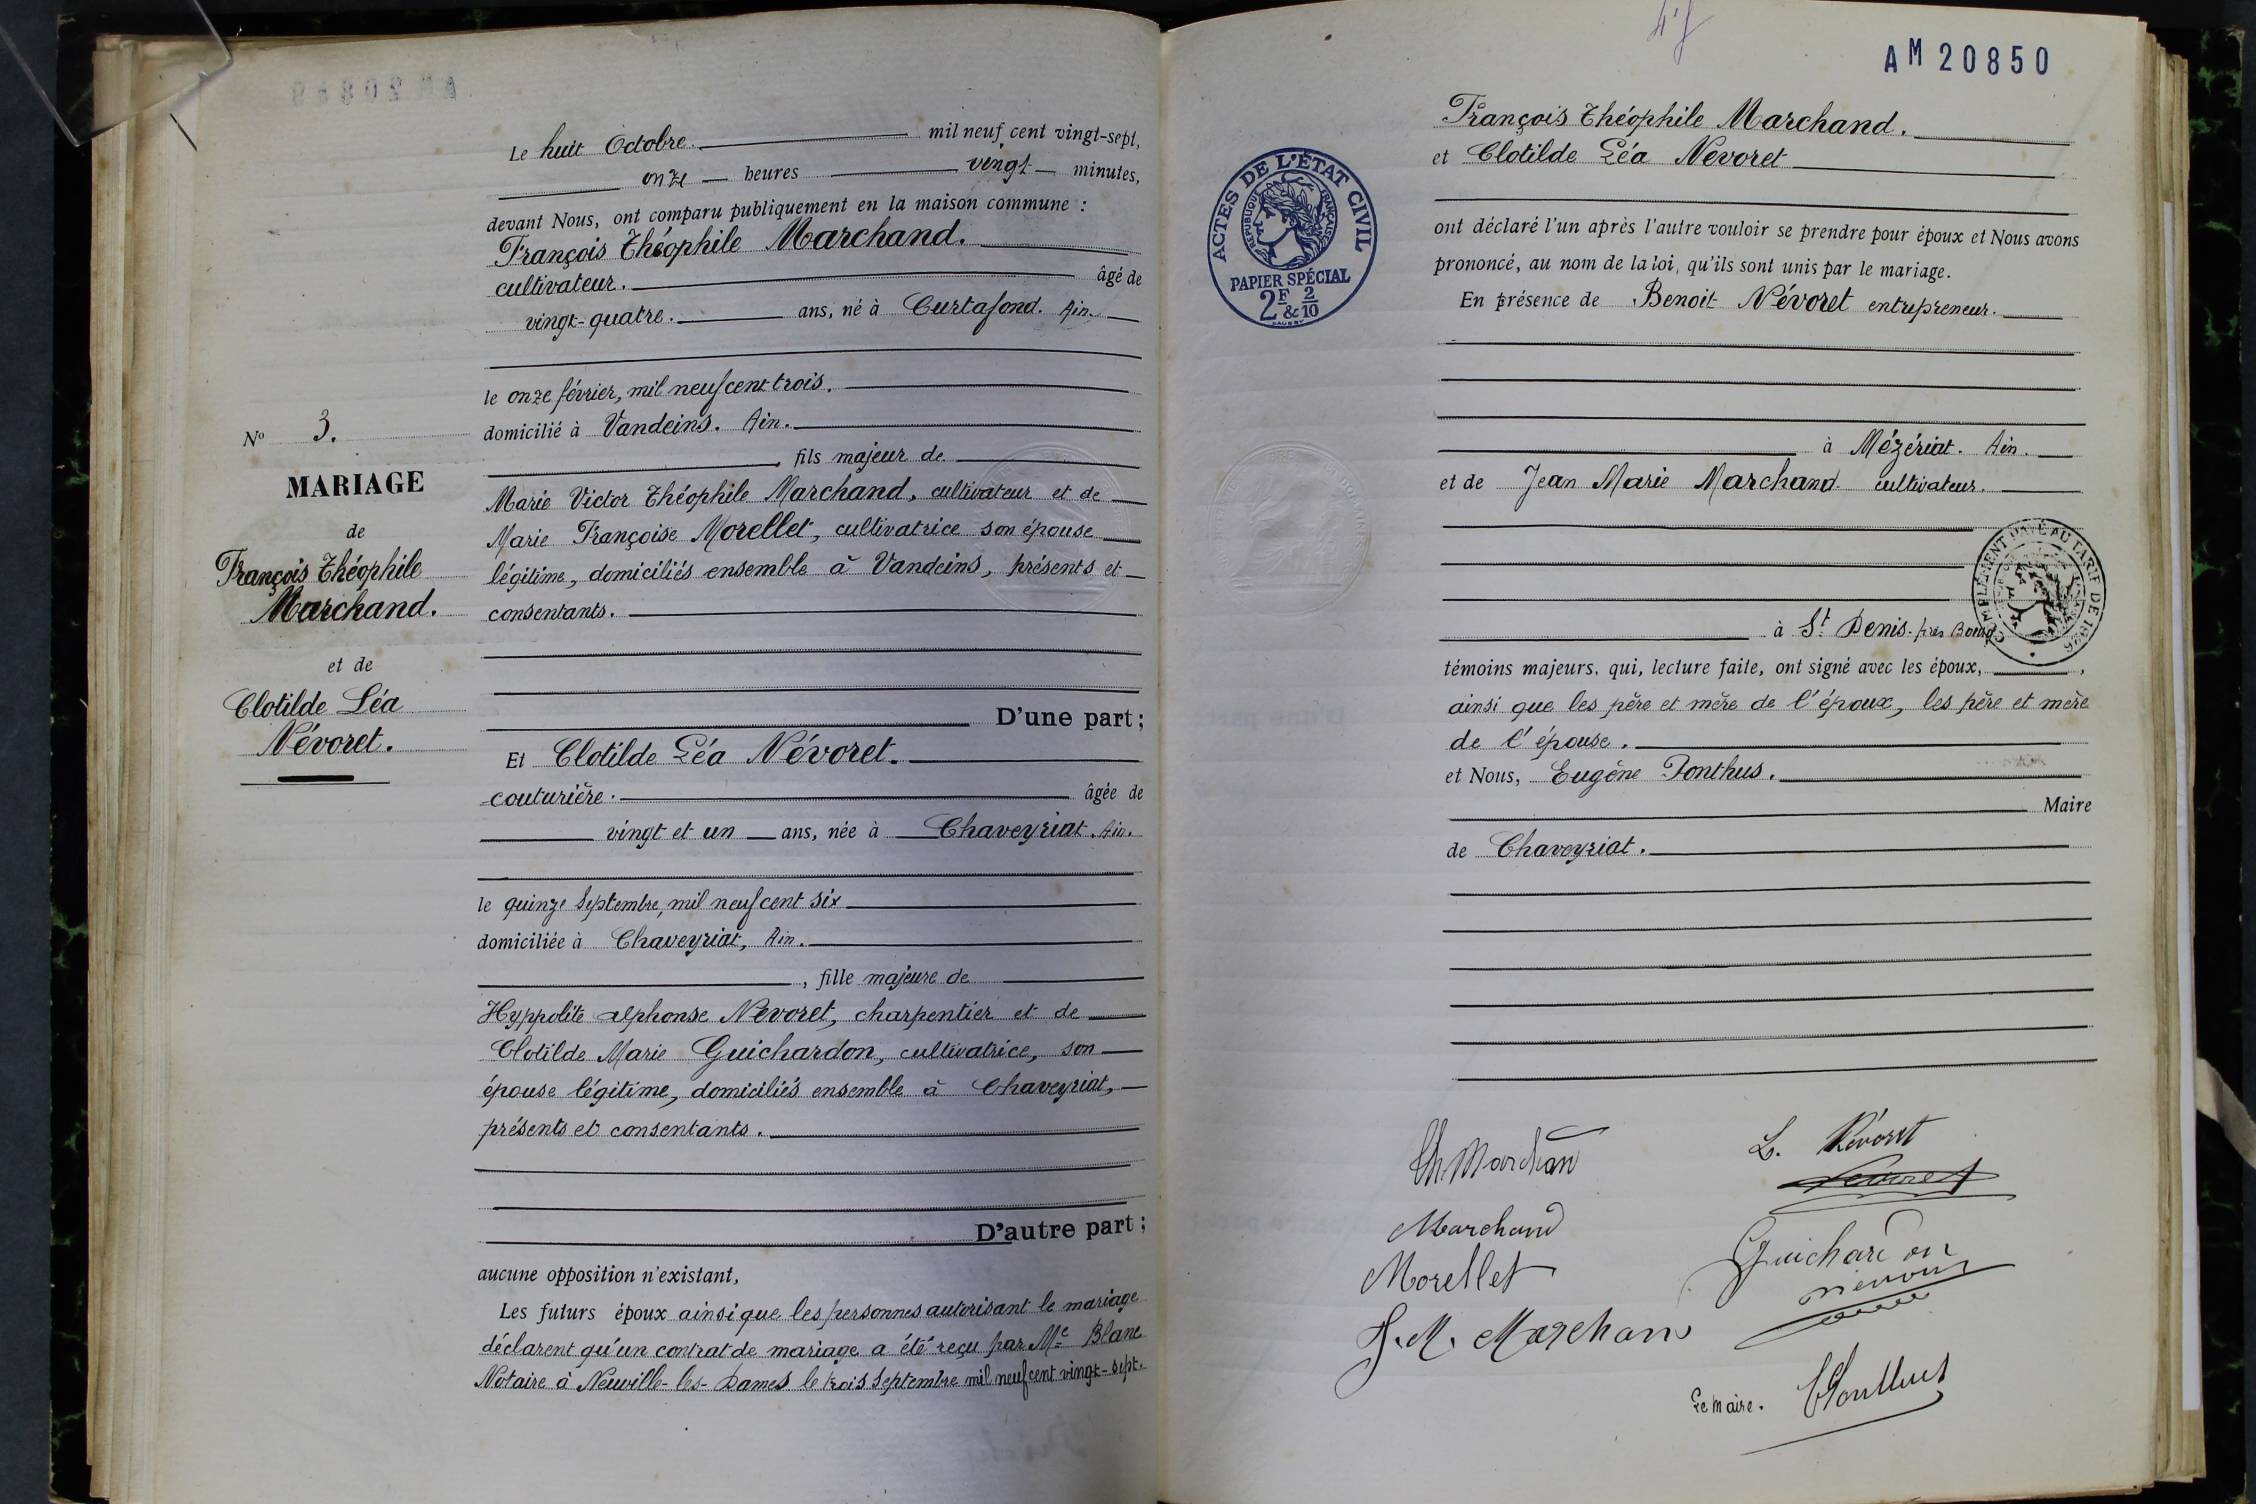 Le huit Octobre. mil neuf cent vingt-sept,
onze heures vingt minutes,
devant Nous, ont comparu publiquement en la maison commune :
François Théophile Marchand.
cultivateur. âgé de
vingt-quatre. ans, né à Curtafond. Ain.
le onze février, mil neuf cent trois.
domicilié à Vandeins. Ain.
, fils majeur de
Marie Victor Théophile Marchand, cultivateur et de
Marie Françoise Morellet, cultivatrice son épouse
légitime, domiciliés ensemble à Vandeins, présents et
consentants.
D'une part ;
Et Clotilde Léa Névoret.
couturière. âgée de
vingt et un ans, née à Chaveyriat. Ain.
le quinze Septembre, mil neuf cent six
domiciliée à Chaveyriat, Ain.
, fille majeure de
Hyppolite Alphonse Névoret, charpentier et de
Clotilde Marie Guichardon, cultivatrice, son
épouse légitime, domiciliés ensemble à Chaveyriat,
présents et consentants.
D'autre part ;
aucune opposition n'existant,
Les futurs époux ainsi que les personnes autorisant le mariage
déclarent qu'un contrat de mariage a été reçu par Me Blanc
Notaire à Neuville-les-Dames le trois Septembre mil neuf cent vingt-sept.
No 3.
MARIAGE
de
François Théophile
Marchand.
et de
Clotilde Léa
Névoret.
AM 20850
ACTES DE L'ÉTAT CIVIL
RÉPUBLIQUE FRANÇAISE
PAPIER SPÉCIAL
2F & 2/10
François Théophile Marchand.
et Clotilde Léa Névoret
ont déclaré l'un après l'autre vouloir se prendre pour époux et Nous avons
prononcé, au nom de la loi, qu'ils sont unis par le mariage.
En présence de Benoit Névoret entrepreneur.
à Mézériat. Ain.
et de Jean Marie Marchand cultivateur.
à St Denis. près Bourg
COMPLÉMENT PAYÉ AU TARIF DE 1926
témoins majeurs, qui, lecture faite, ont signé avec les époux,
ainsi que les père et mère de l'époux, les père et mère
de l'épouse.
et Nous, Eugène Ponthus.
Maire
de Chaveyriat.
Th Marchand
L. Névoret
Névoret
Marchand
Morellet
Guichardon
Névoret
J. M. Marchand
Le maire.
E Ponthus